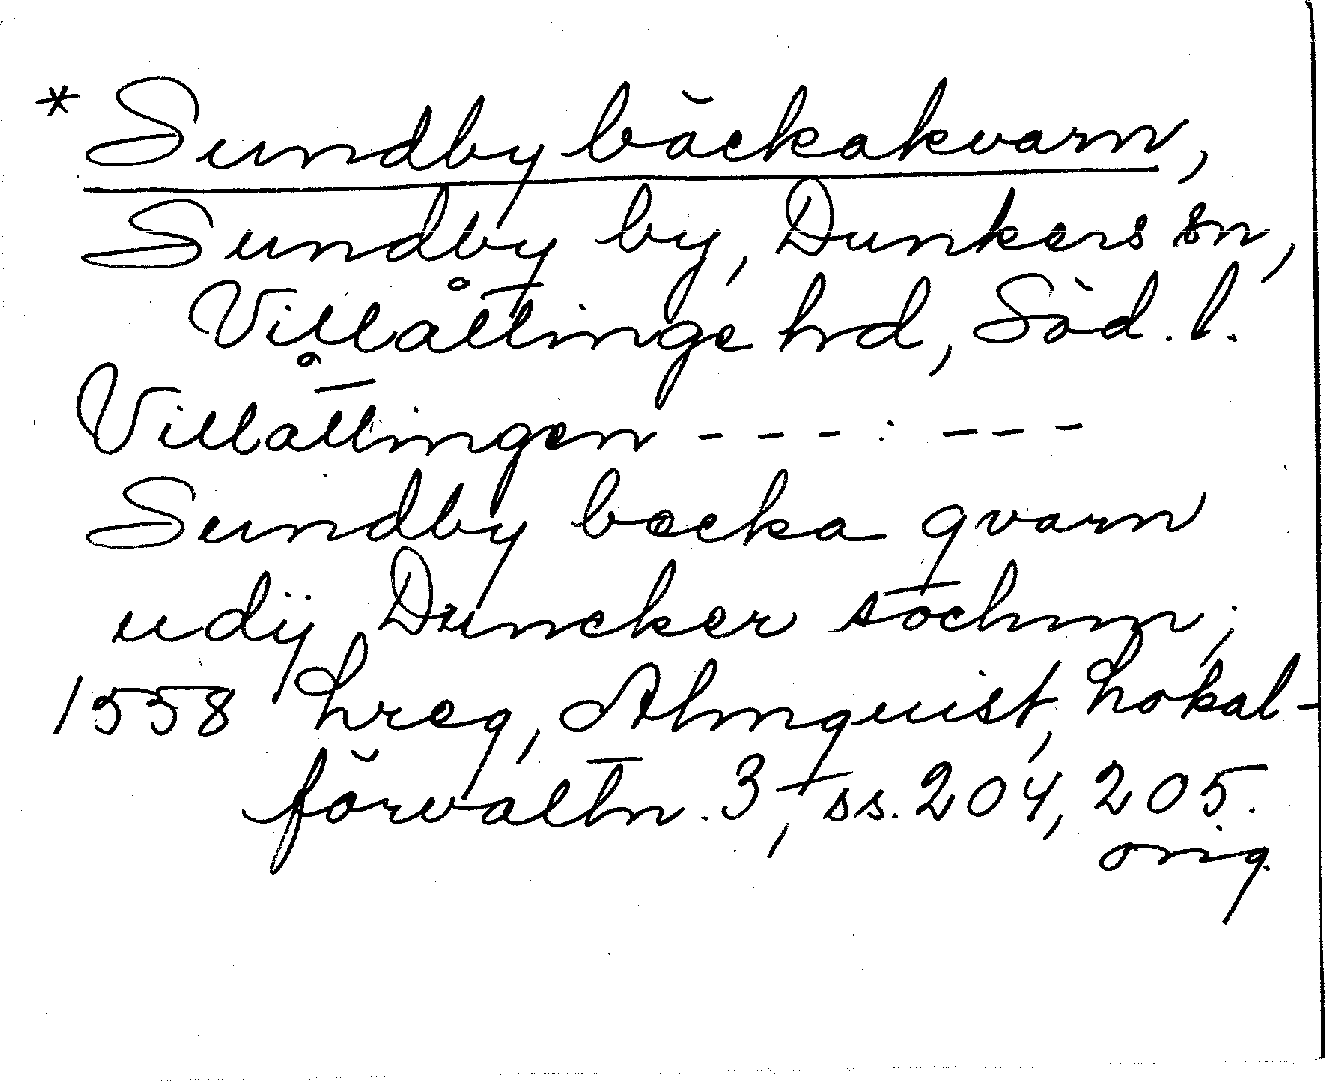 * Sundby bäckakvarn,
Sundby by, Dunkers sn,
Villåttinge hrd, Söd. l.
Villåttingen - - - : - - -
Sundby becka qvarn
udij Duncker sochnn;
1558 Lreg, Almquist, Lokal-
förvaltn. 3, ss. 204, 205.
orig.